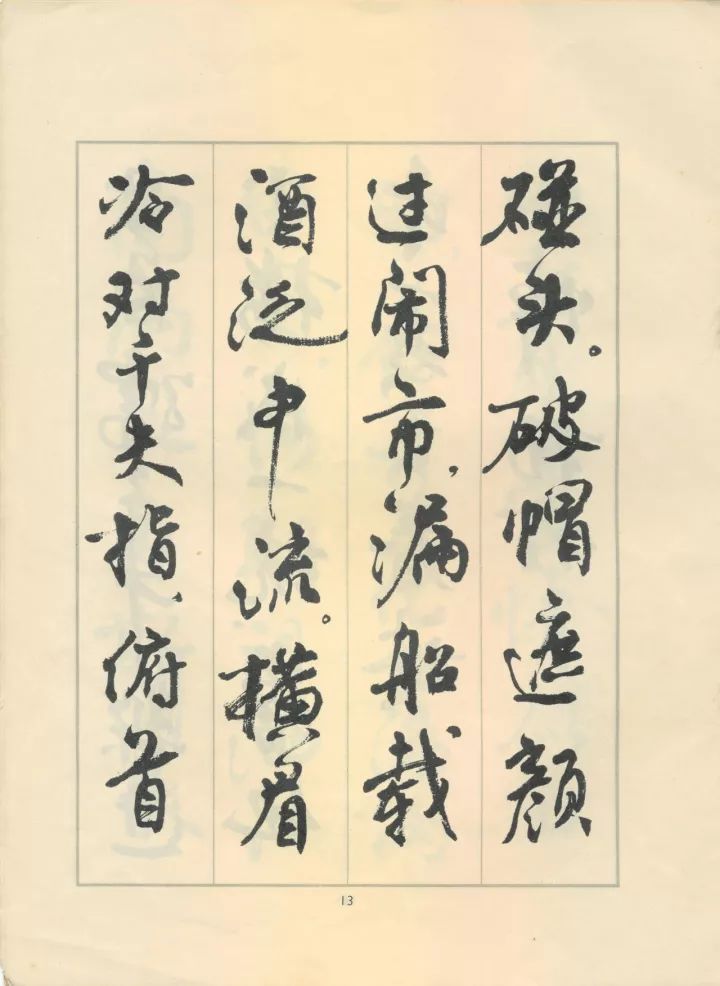 碰头。破帽遮颜
过闹市,漏船载
酒泛中流。横眉
冷对千夫指,俯首
13